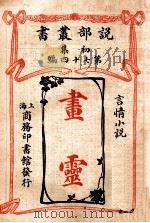 說部叢書
初集
第六十四編
言情小說
畫靈
上海
商務印書館發行